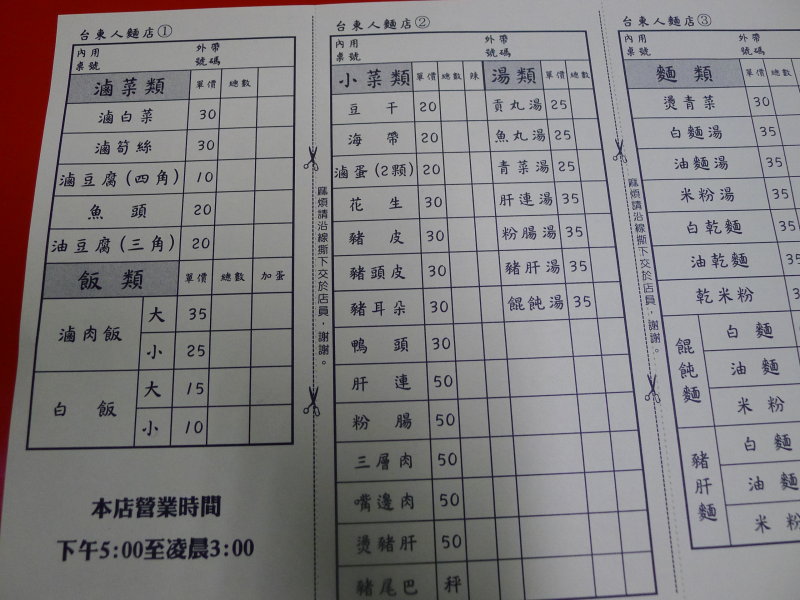 台東人麵店①
內用 桌號 外帶 號碼
滷菜類 單價 總數
滷白菜 30
滷筍絲 30
滷豆腐(四角) 10
魚頭 20
油豆腐(三角) 20
飯類 單價 總數 加蛋
滷肉飯 大 35
小 25
白飯 大 15
小 10
本店營業時間
下午5:00至凌晨3:00
麻煩請沿線撕下交於店員,謝謝。
台東人麵店②
內用 桌號 外帶 號碼
小菜類 單價 總數 辣 湯類 單價 總數
豆干 20 貢丸湯 25
海帶 20 魚丸湯 25
滷蛋(2顆) 20 青菜湯 25
花生 30 肝連湯 35
豬皮 30 粉腸湯 35
豬頭皮 30 豬肝湯 35
豬耳朵 30 餛飩湯 35
鴨頭 30
肝連 50
粉腸 50
三層肉 50
嘴邊肉 50
燙豬肝 50
豬尾巴 秤
麻煩請沿線撕下交於店員,謝謝。
台東人麵店③
內用 桌號 外帶 號碼
麵類 單價 總數
燙青菜 30
白麵湯 35
油麵湯 35
米粉湯 35
白乾麵 35
油乾麵 35
乾米粉
餛飩麵 白麵
油麵
米粉
豬肝麵 白麵
油麵
米粉